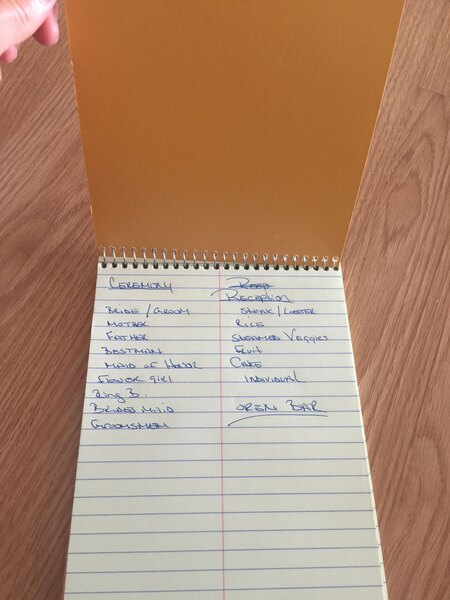 CEREMONY
BRIDE / GROOM
MOTHER
FATHER
BESTMAN
MAID OF HONOR
FLOWER GIRL
Ring B.
BRIDES MAID
GROOMSMEN
RECEPTION
STEAK / LOBSTER
RICE
STEAMED VEGGIES
FRUIT
CAKE
INDIVIDUAL
OPEN BAR